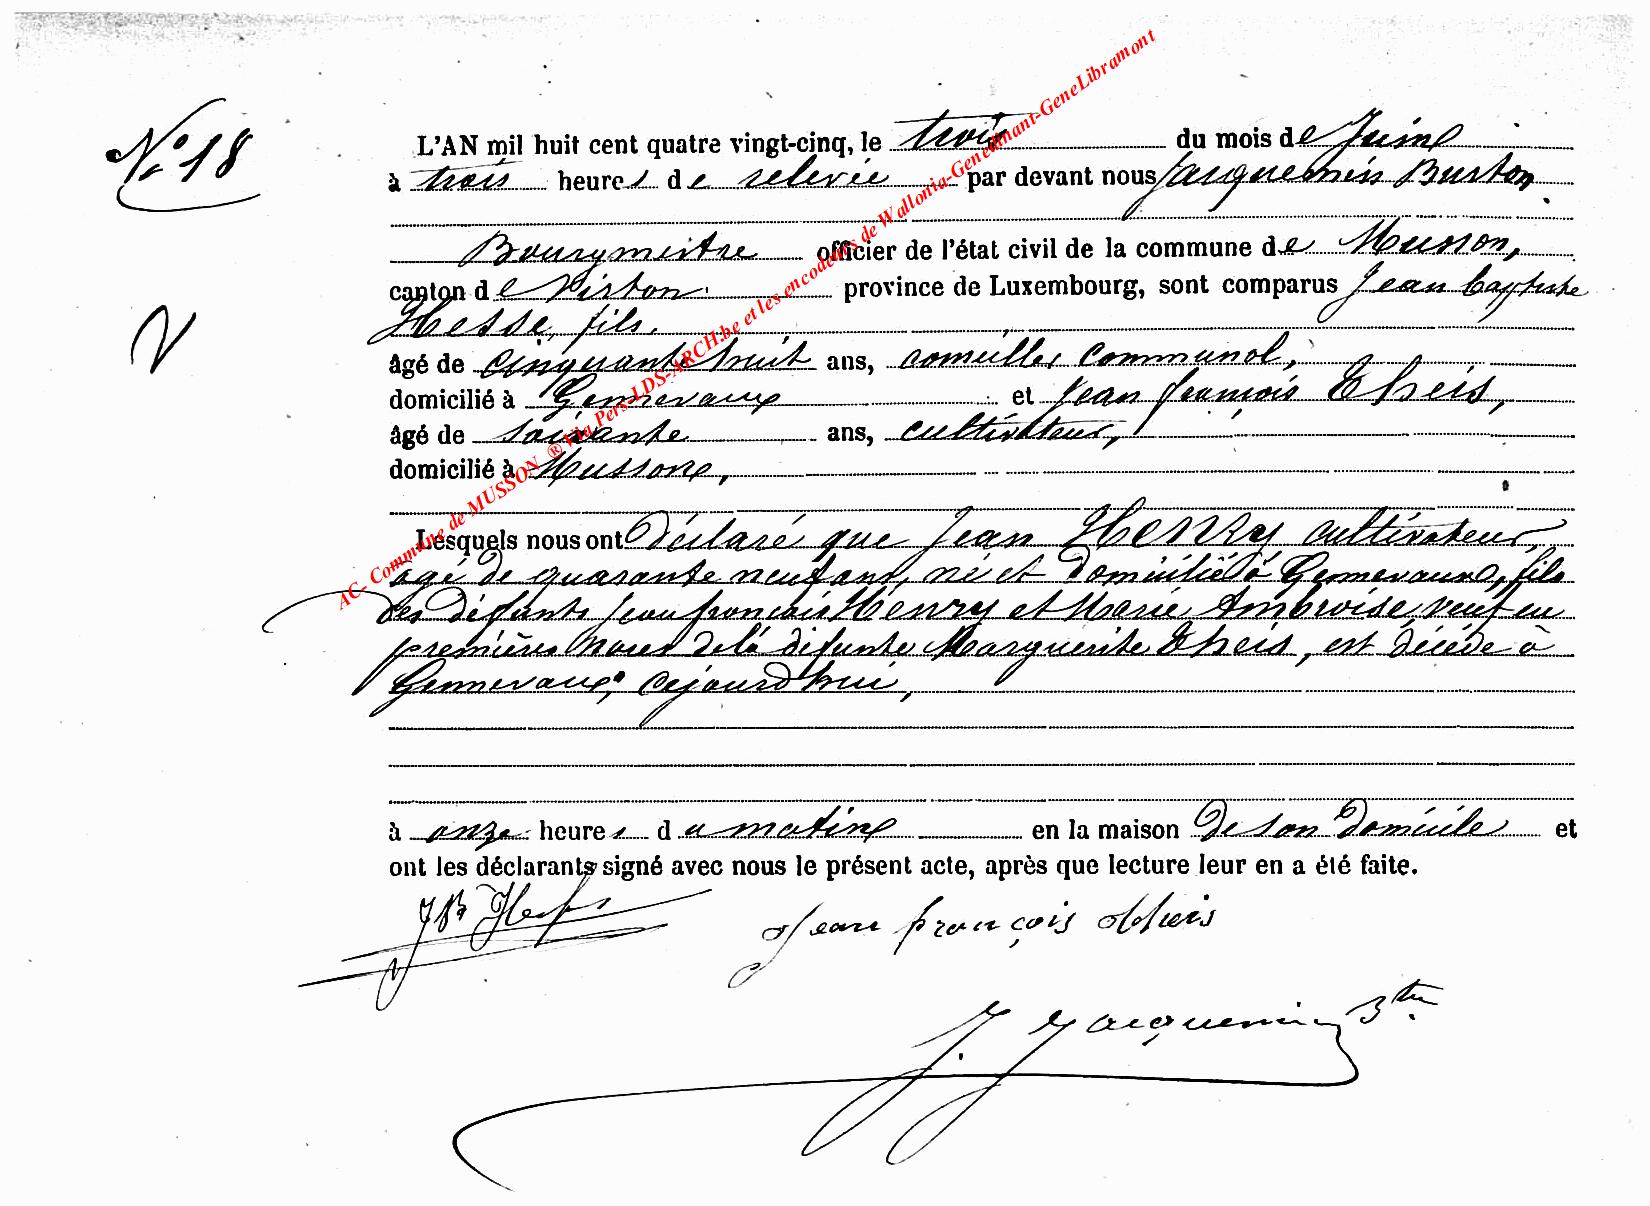 N° 18
L'AN mil huit cent quatre vingt-cinq, le trois du mois de Juin
à trois heures de relevée par devant nous Jacquemin Burton
Bourgmestre officier de l'état civil de la commune de Musson,
canton de Virton province de Luxembourg, sont comparus Jean Baptiste
Hesse, fils.
âgé de cinquante huit ans, conseiller communal,
domicilié à Gennevaux et Jean François Theis,
âgé de soixante ans, cultivateur,
domicilié à Musson,
Lesquels nous ont déclaré que Jean HENRY cultivateur,
agé de quarante neuf ans, né et domicilié à Gennevaux, fils
des défunts Jean françois Henry et Marie Ambroise, veuf en
premières noces de la défunte Marguerite Theis, est décédé à
Gennevaux, cejourd'hui,
à onze heures du matin en la maison de son domicile et
ont les déclarants signé avec nous le présent acte, après que lecture leur en a été faite.
JB Hesse
Jean françois theis
J. Jacquemin Btre
AC- Commune de MUSSON ® Via Pers-LDS-ARCH.be et les encodeurs de Wallonia-Genedinant-GeneLibramont